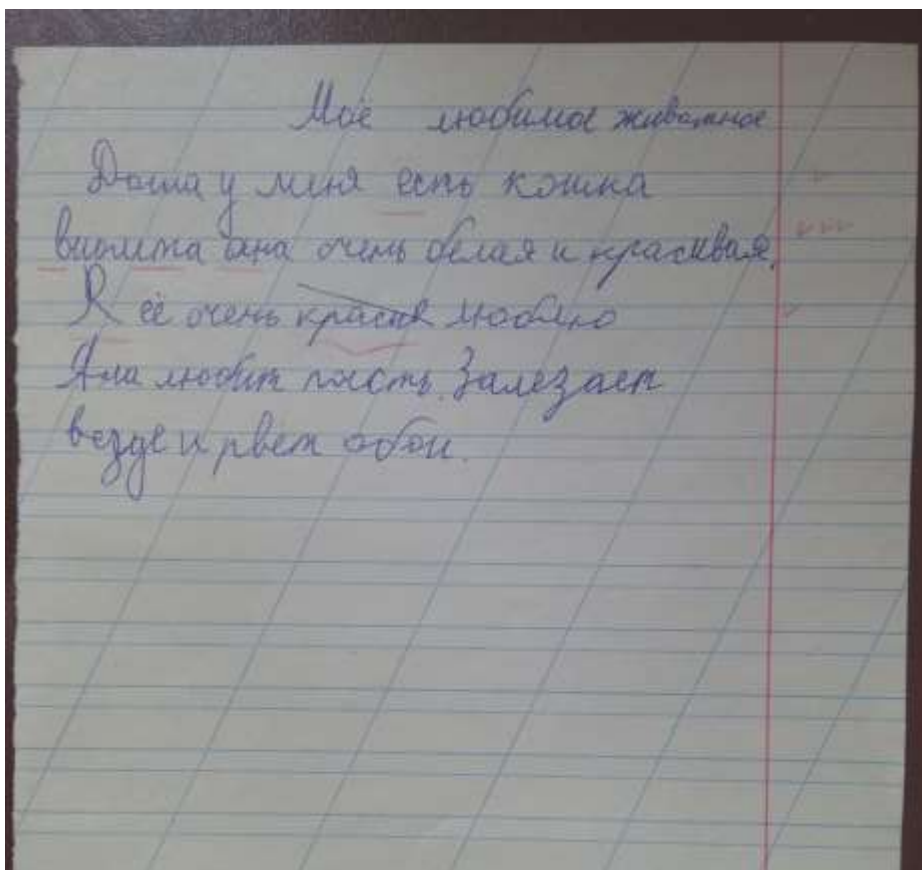 Моё любимое живатное
Дома у миня есть кошка
она очень белая и красивая.
Я её очень люблю
Ана любит поесть. Залезает
везде и рвет обои.